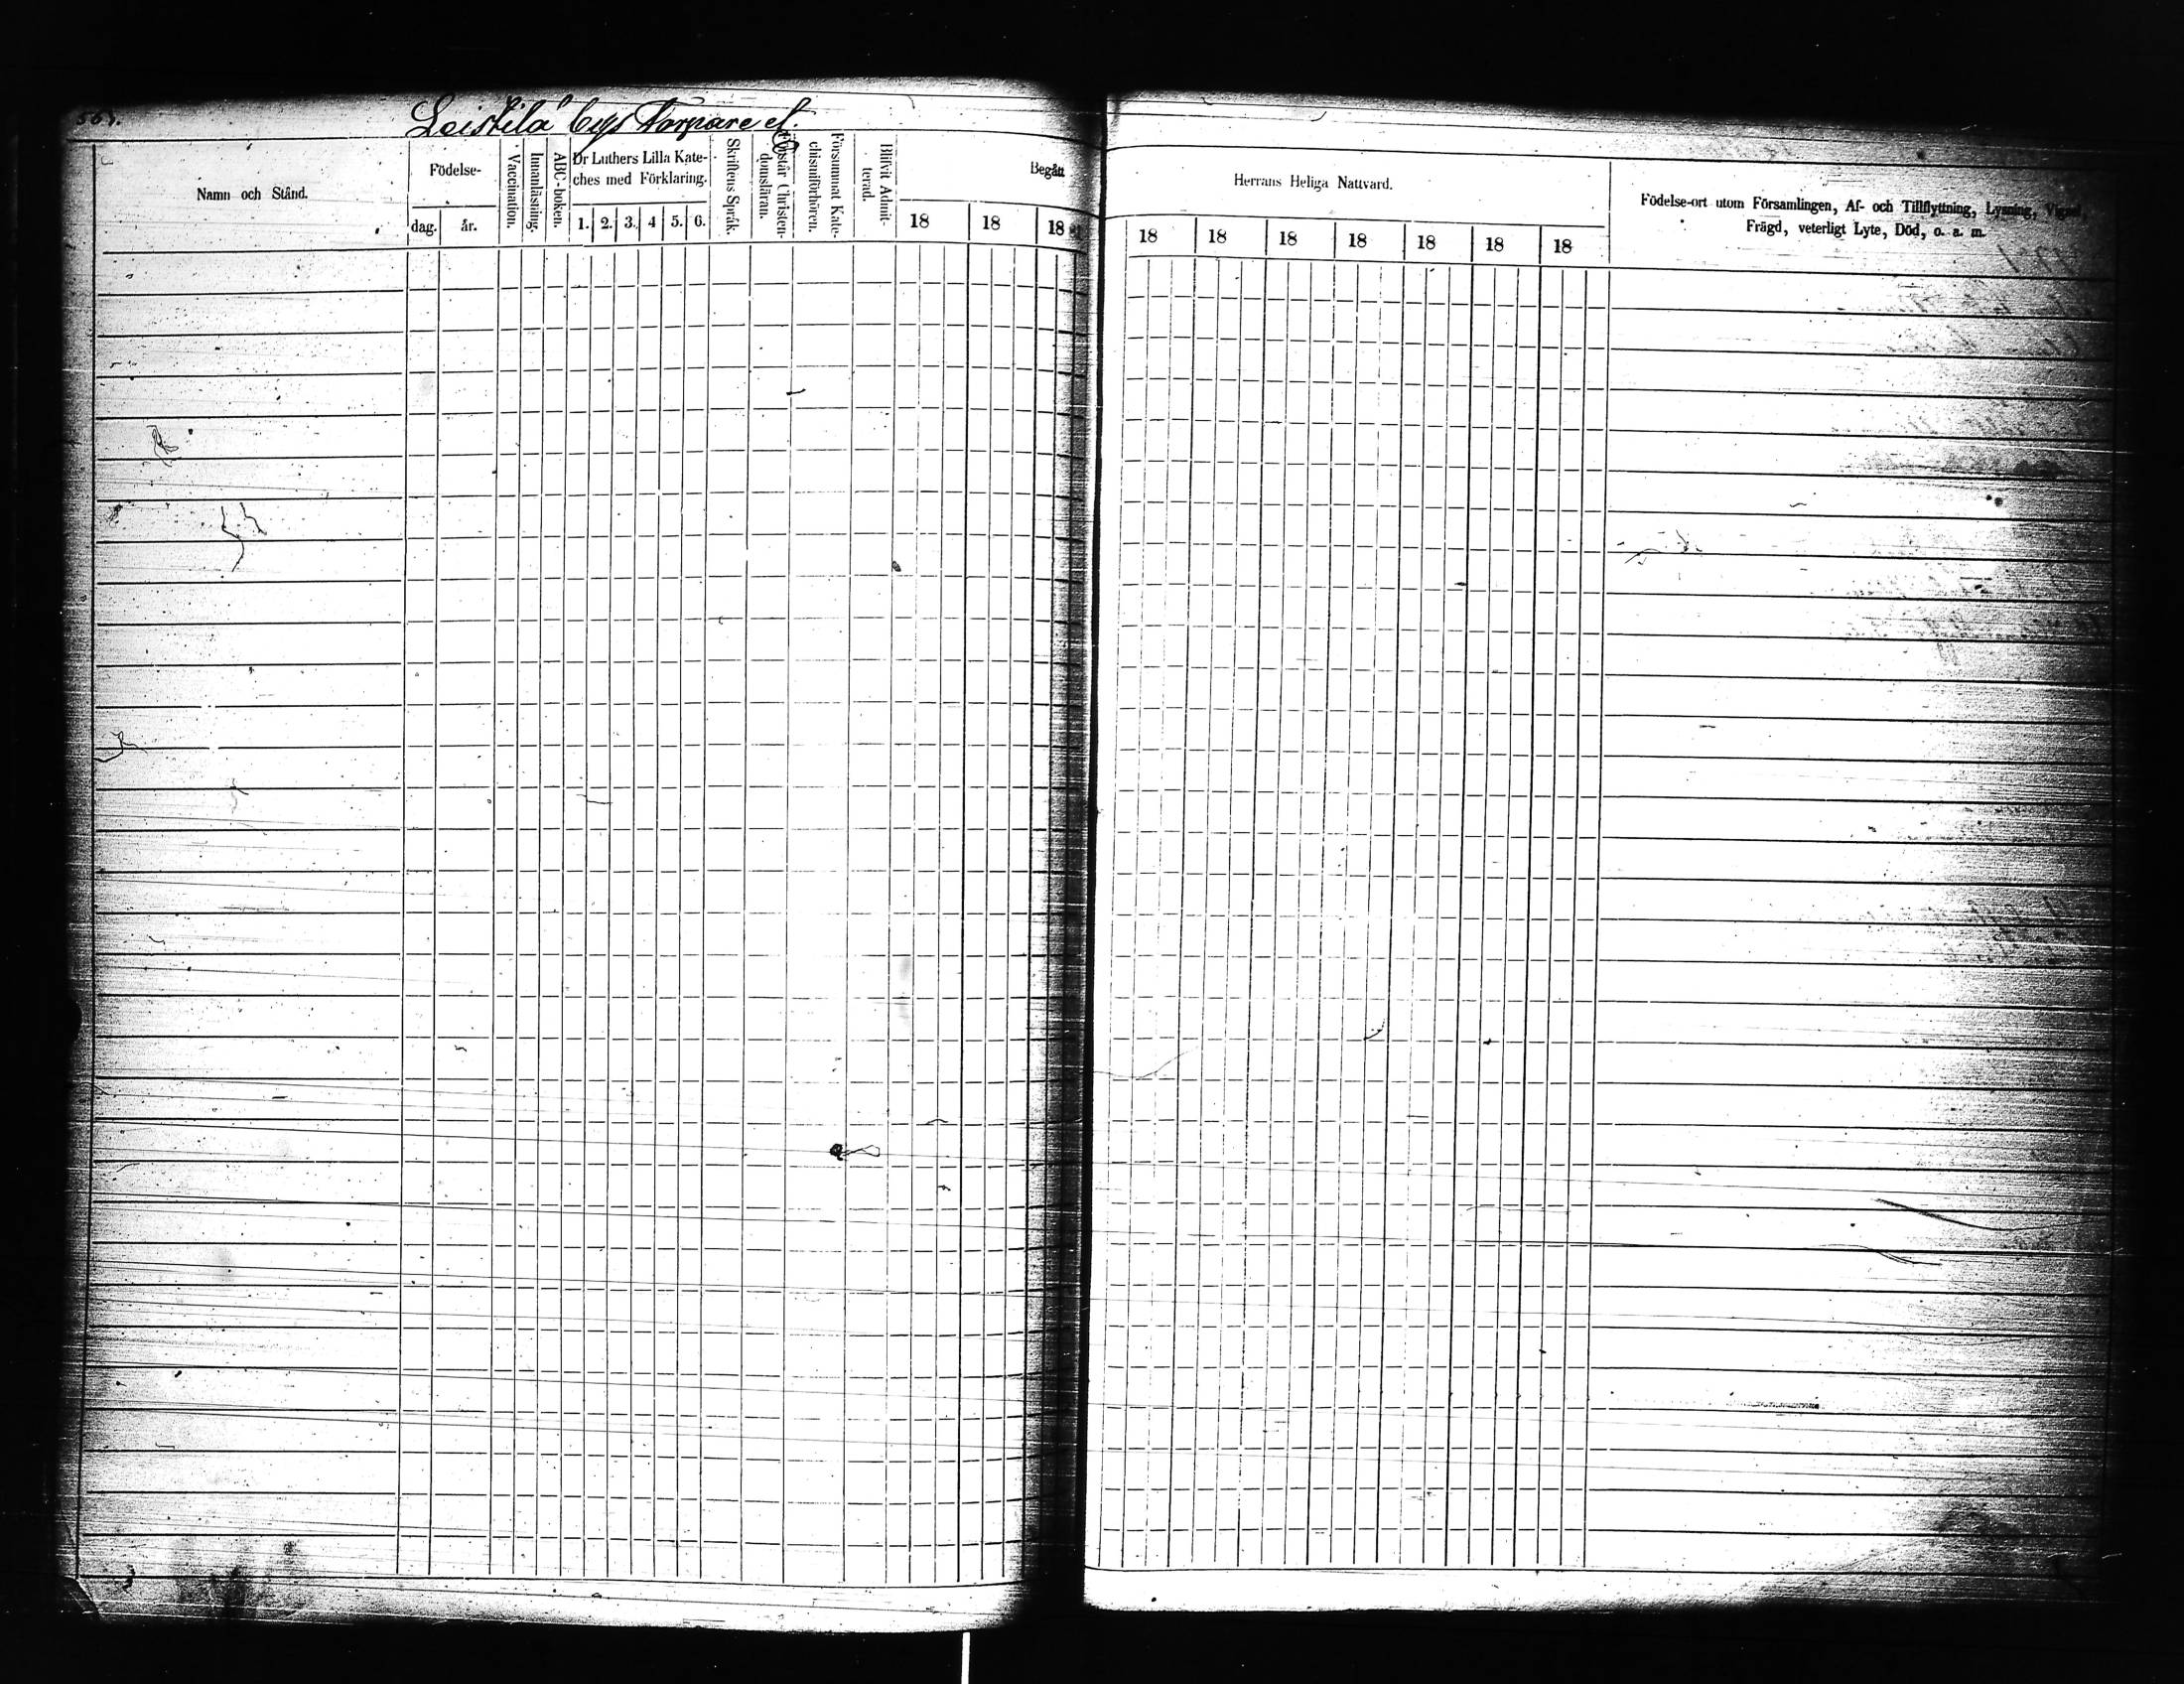 Leistilä bys Torpare et
Namn och Stånd.
Födelse-
dag.
år.
Vaccination.
Innanläsning.
ABC-boken.
Dr Luthers Lilla Kate-
ches med Förklaring.
1. 2. 3. 4 5. 6.
Skriftens Språk.
Förstår Christen-
domsläran.
Försummat Kate-
chismiförhören.
Blifvit Admit-
terad.
Begått
18 18 18
Herrans Heliga Nattvard.
18 18 18 18 18 18 18
Födelse-ort utom Församlingen, Af- och Tillflyttning, Lysning,
Frägd, veterligt Lyte, Död, o. a. m.